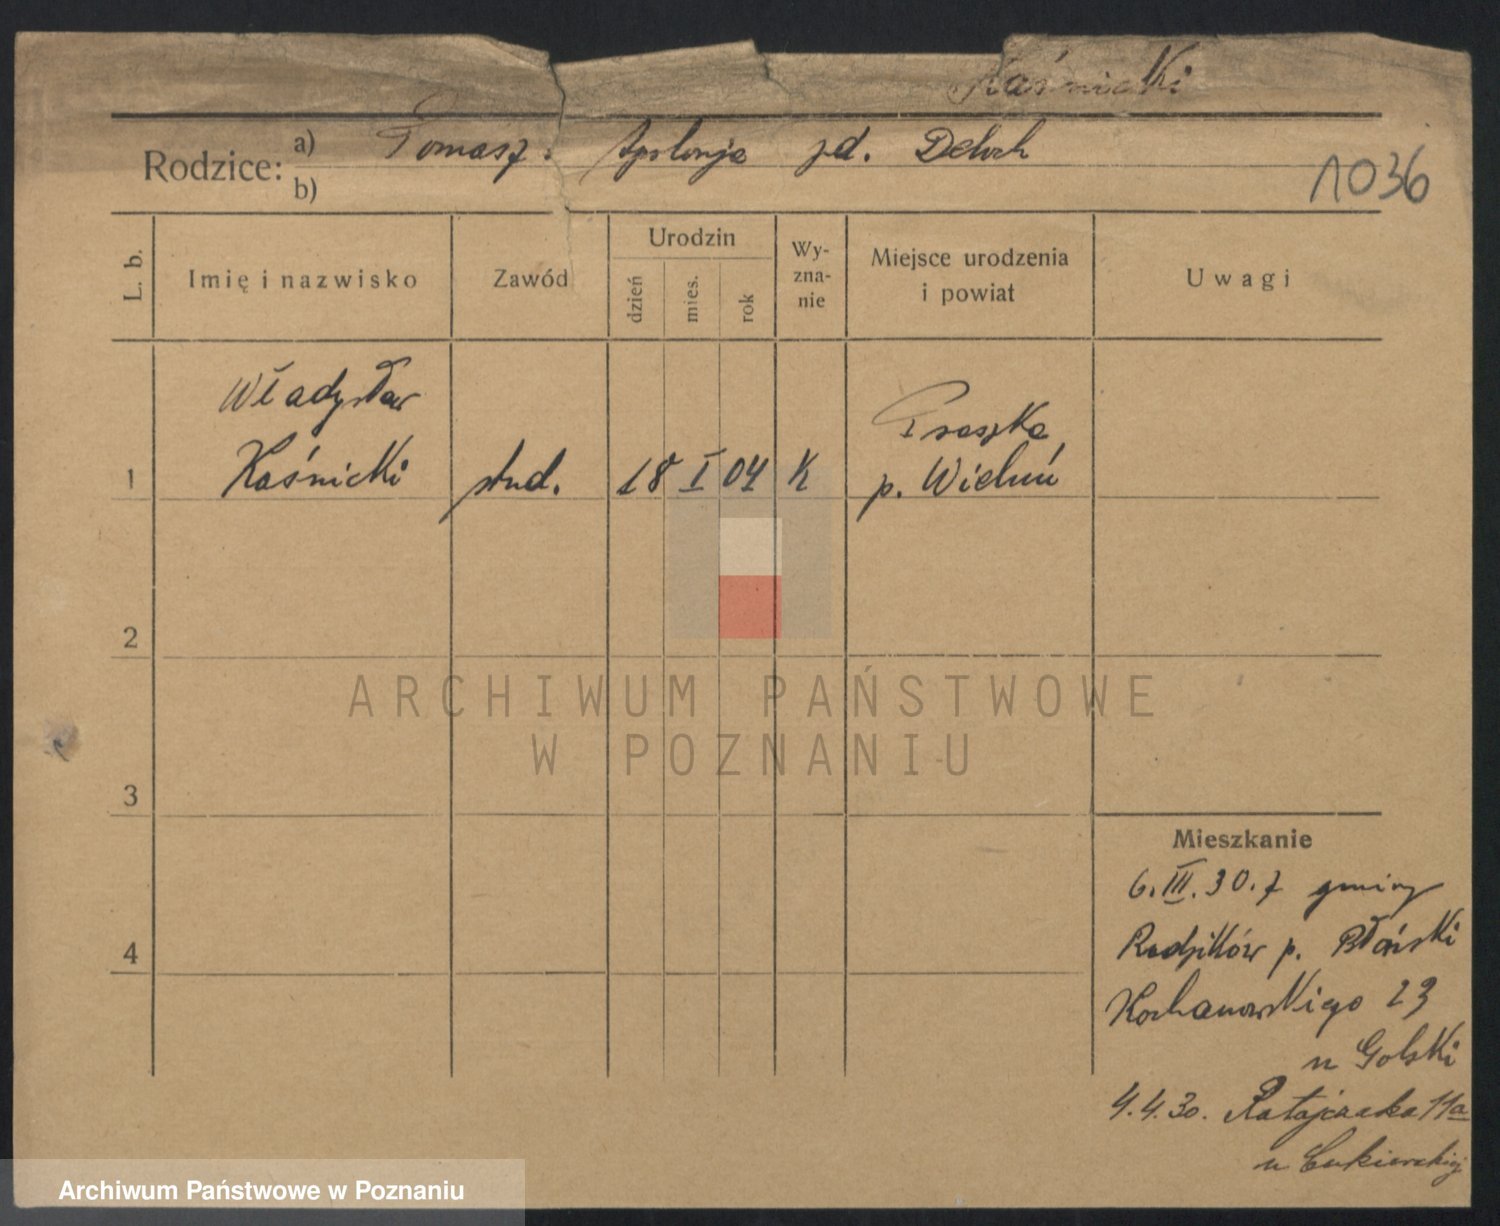 Kaśnicki
Rodzice: a) Tomasz. Apolonja zd. Deloch
b)
1036
L. b.
Imię i nazwisko
Zawód
Urodzin
dzień
mies.
rok
Wy-
zna-
nie
Miejsce urodzenia
i powiat
Uwagi
Władysław
Kaśnicki
1
stud.
18 I 04
K
Praszka
p. Wieluń
2
3
4
ARCHIWUM PAŃSTWOWE
W POZNANIU
Mieszkanie
6.III.30. z gminy
p. Błoński
Kochanowskiego 23
u Golski
4.4.30. Ratajczaka 11a
u Cukierskiej
Archiwum Państwowe w Poznaniu